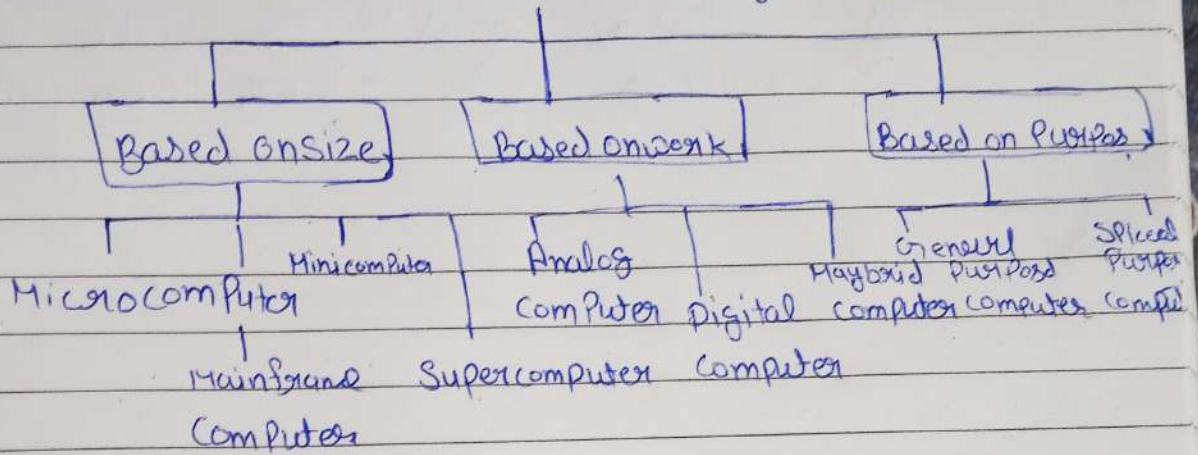 Based onsize
Based onwork
Based on Purpos
Microcomputer
Mainframe
Computer
Minicomputer
Supercomputer
Analog
Computer
Digital
Computer
Haybrid
computer
Generl
Purposd
computer